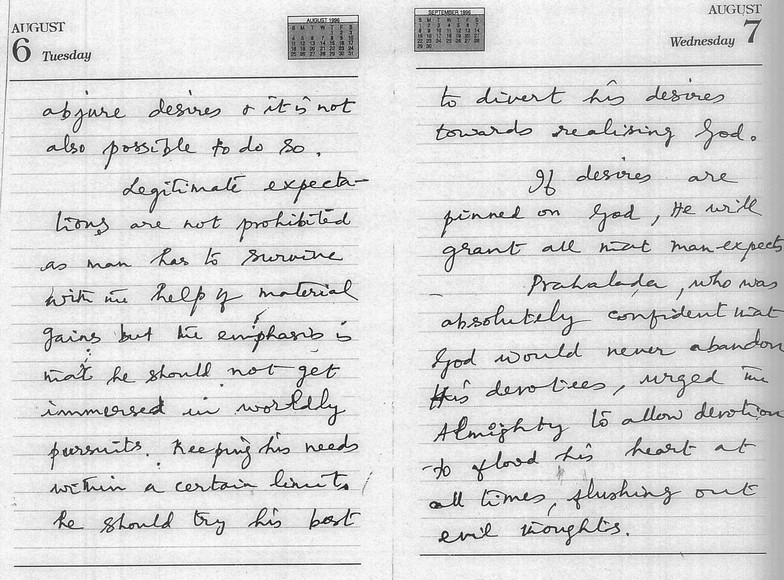 AUGUST
6 Tuesday
AUGUST 1996
abjure desires & it is not
also possible to do so.
Legitimate expecta-
tions are not prohibited
as man has to survive
with the help of material
gains but the emphasis is
that he should not get
immersed in worldly
pursuits. Keeping his needs
within a certain limits
he should try his best
SEPTEMBER 1996
AUGUST
Wednesday 7
to divert his desires
towards realising God.
If desires are
pinned on God, He will
grant all that man expects
Prahalada, who was
absolutely confident that
God would never abandon
His devotees, urged the
Almighty to allow devotion
to flood his heart at
all times, flushing out
evil thoughts.